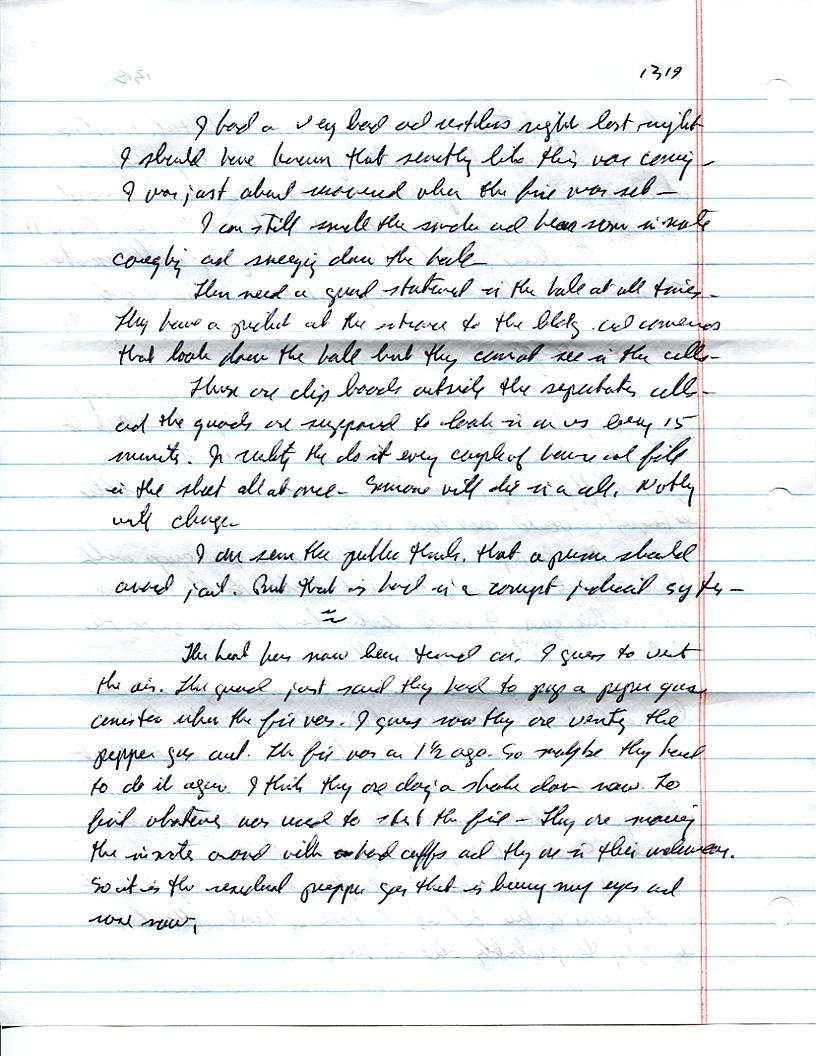 1319
I had a very bad and restless night last night
I should have known that something like this was coming -
I was just about recovered when the fire was set -
I can still smell the smoke and hear some inmate
coughing and sneezing down the hall -
They need a guard stationed in the hall at all times -
They have a picket at the entrance to the bldg. and cameras
that look down the hall but they cannot see in the cells -
There are clip boards outside the cells -
and the guards are supposed to look in on us every 15
minutes. In reality the do it every couple of hours and fill
in the sheet all at once - Someone will die in a cell. Nothing
will change -
I am sure the public thinks, that a person should
avoid jail. But that is hard in a corrupt judicial system -
The heat has now been turned on. I guess to vent
the air. The guard just said they had to pop a pepper gas
canister when the fire was. I guess now they are venting the
pepper gas out. The fire was an 1½ ago. So maybe they had
to do it again. I think they are doing a shake down now. To
find whatever was used to start the fire - They are moving
the inmates around with hand cuffs and they are in their underwear.
So it is the residual pepper gas that is burning my eyes and
nose now.